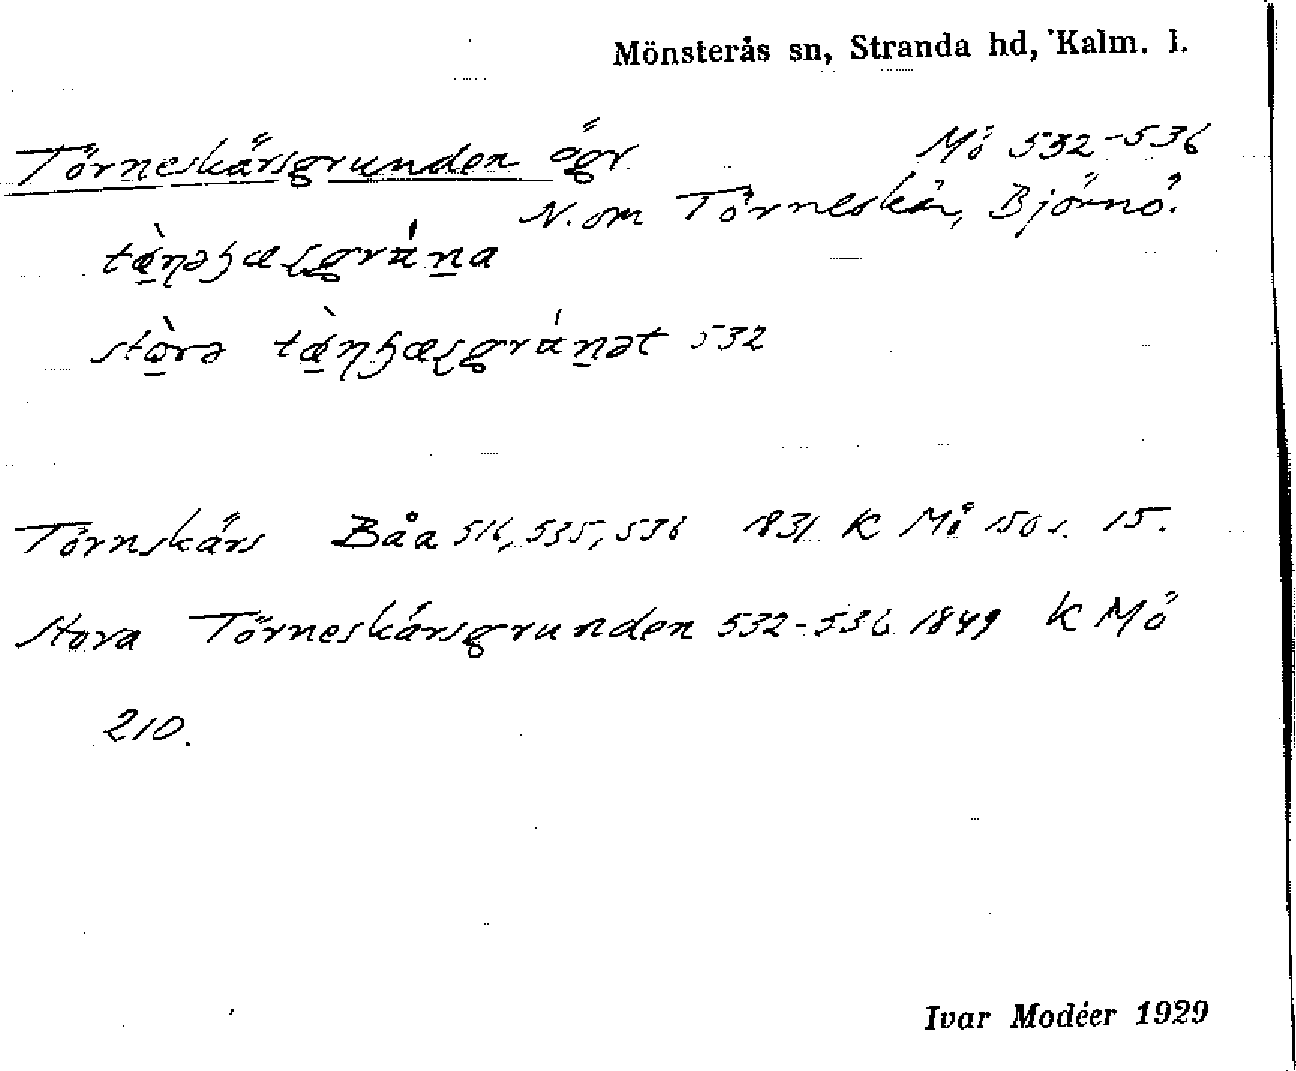 Mönsterås sn, Stranda hd, Kalm. l.
Törneskärsgrunden ögr Mö 532-536
N. om Törneskär, Björnö.
stora 532
Törnskärs Båa 516, 535, 536 1831 K Mö 150 s. 15.
Stora Törneskärsgrunden 532-536 1849 K Mö
210.
Ivar Modéer 1929